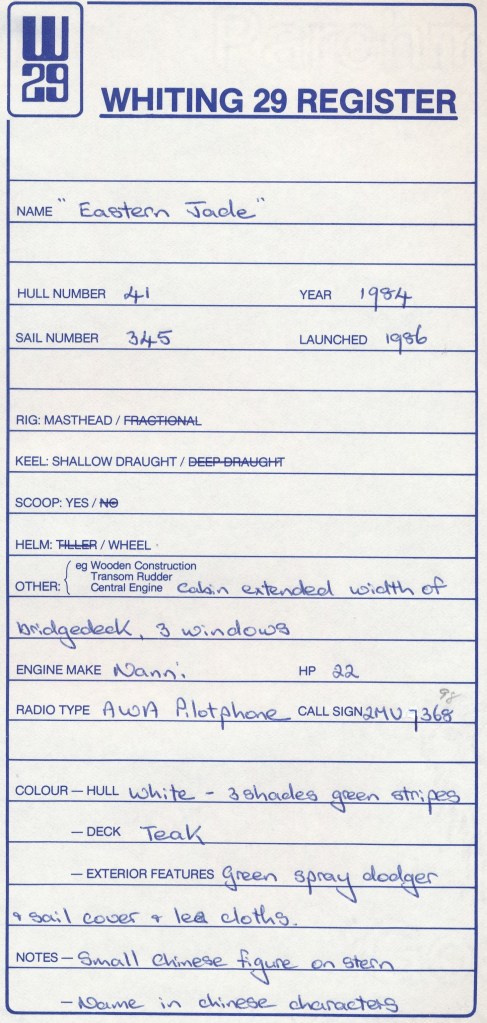 W
29
WHITING 29 REGISTER
NAME " Eastern Jade "
HULL NUMBER 41 YEAR 1984
SAIL NUMBER 345 LAUNCHED 1986
RIG: MASTHEAD / FRACTIONAL
KEEL: SHALLOW DRAUGHT / DEEP DRAUGHT
SCOOP: YES / NO
HELM: TILLER / WHEEL
eg Wooden Construction
Transom Rudder
OTHER: Central Engine Cabin extended width of
bridgedeck, 3 windows
ENGINE MAKE Nanni HP 22
98
RADIO TYPE AWA Pilotphone CALL SIGN 2MU 7368
COLOUR — HULL White - 3 shades green stripes
— DECK Teak
— EXTERIOR FEATURES Green spray dodger
+ sail cover + lee cloths.
NOTES — Small Chinese figure on stern
— Name in chinese characters